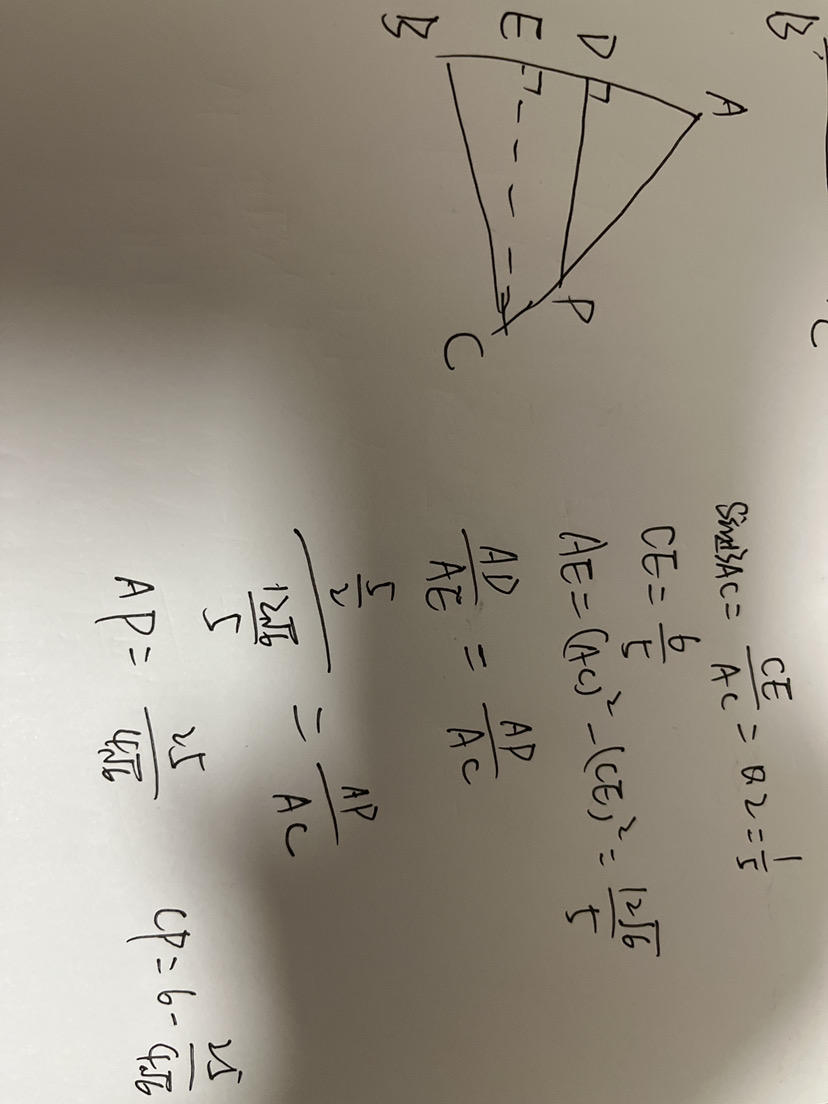 B
C
A
D
E
B
P
C
sin∠BAC = CE/AC = 0.2 = 1/5
CE = 6/5
AE = (AC)² - (CE)² = 12√6/5
AD/AE = AP/AC
5/2 / 12√6/5 = AP/AC
AP = 25/4√6
CP = 6 - 25/4√6